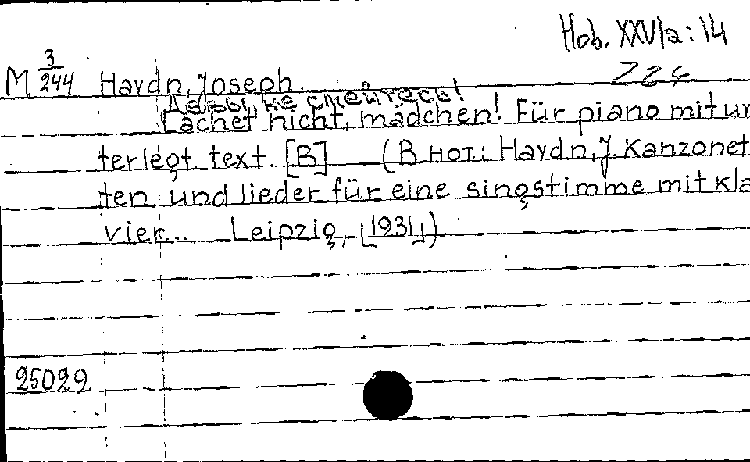 Hob. XXVIa: 14
M 3/244 Haydn, Joseph
224
не смейтесь!
Lachet nicht, mädchen! Für piano mit un
terlegt text. [B] (В нот.: Haydn, J. Kanzonet
ten und lieder für eine singstimme mit kla
vier.. Leipzig, [1931])
25029